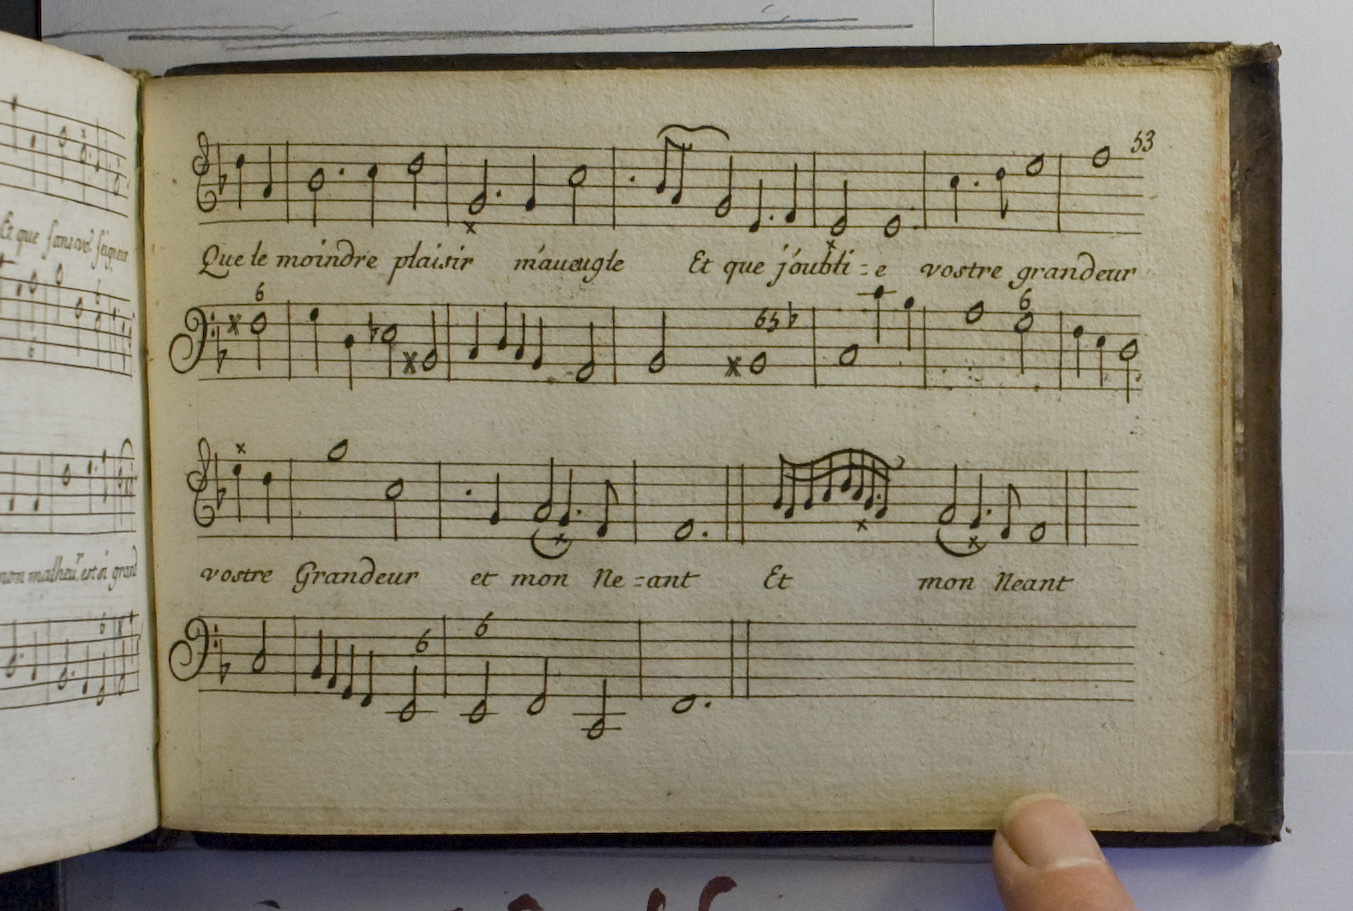 53
Et que sans vos
Que le moindre plaisir m'aueugle Et que j'oubli=e vostre grandeur
6
65
6
mon malheur est si grand
vostre Grandeur et mon Ne=ant Et mon Neant
6 6